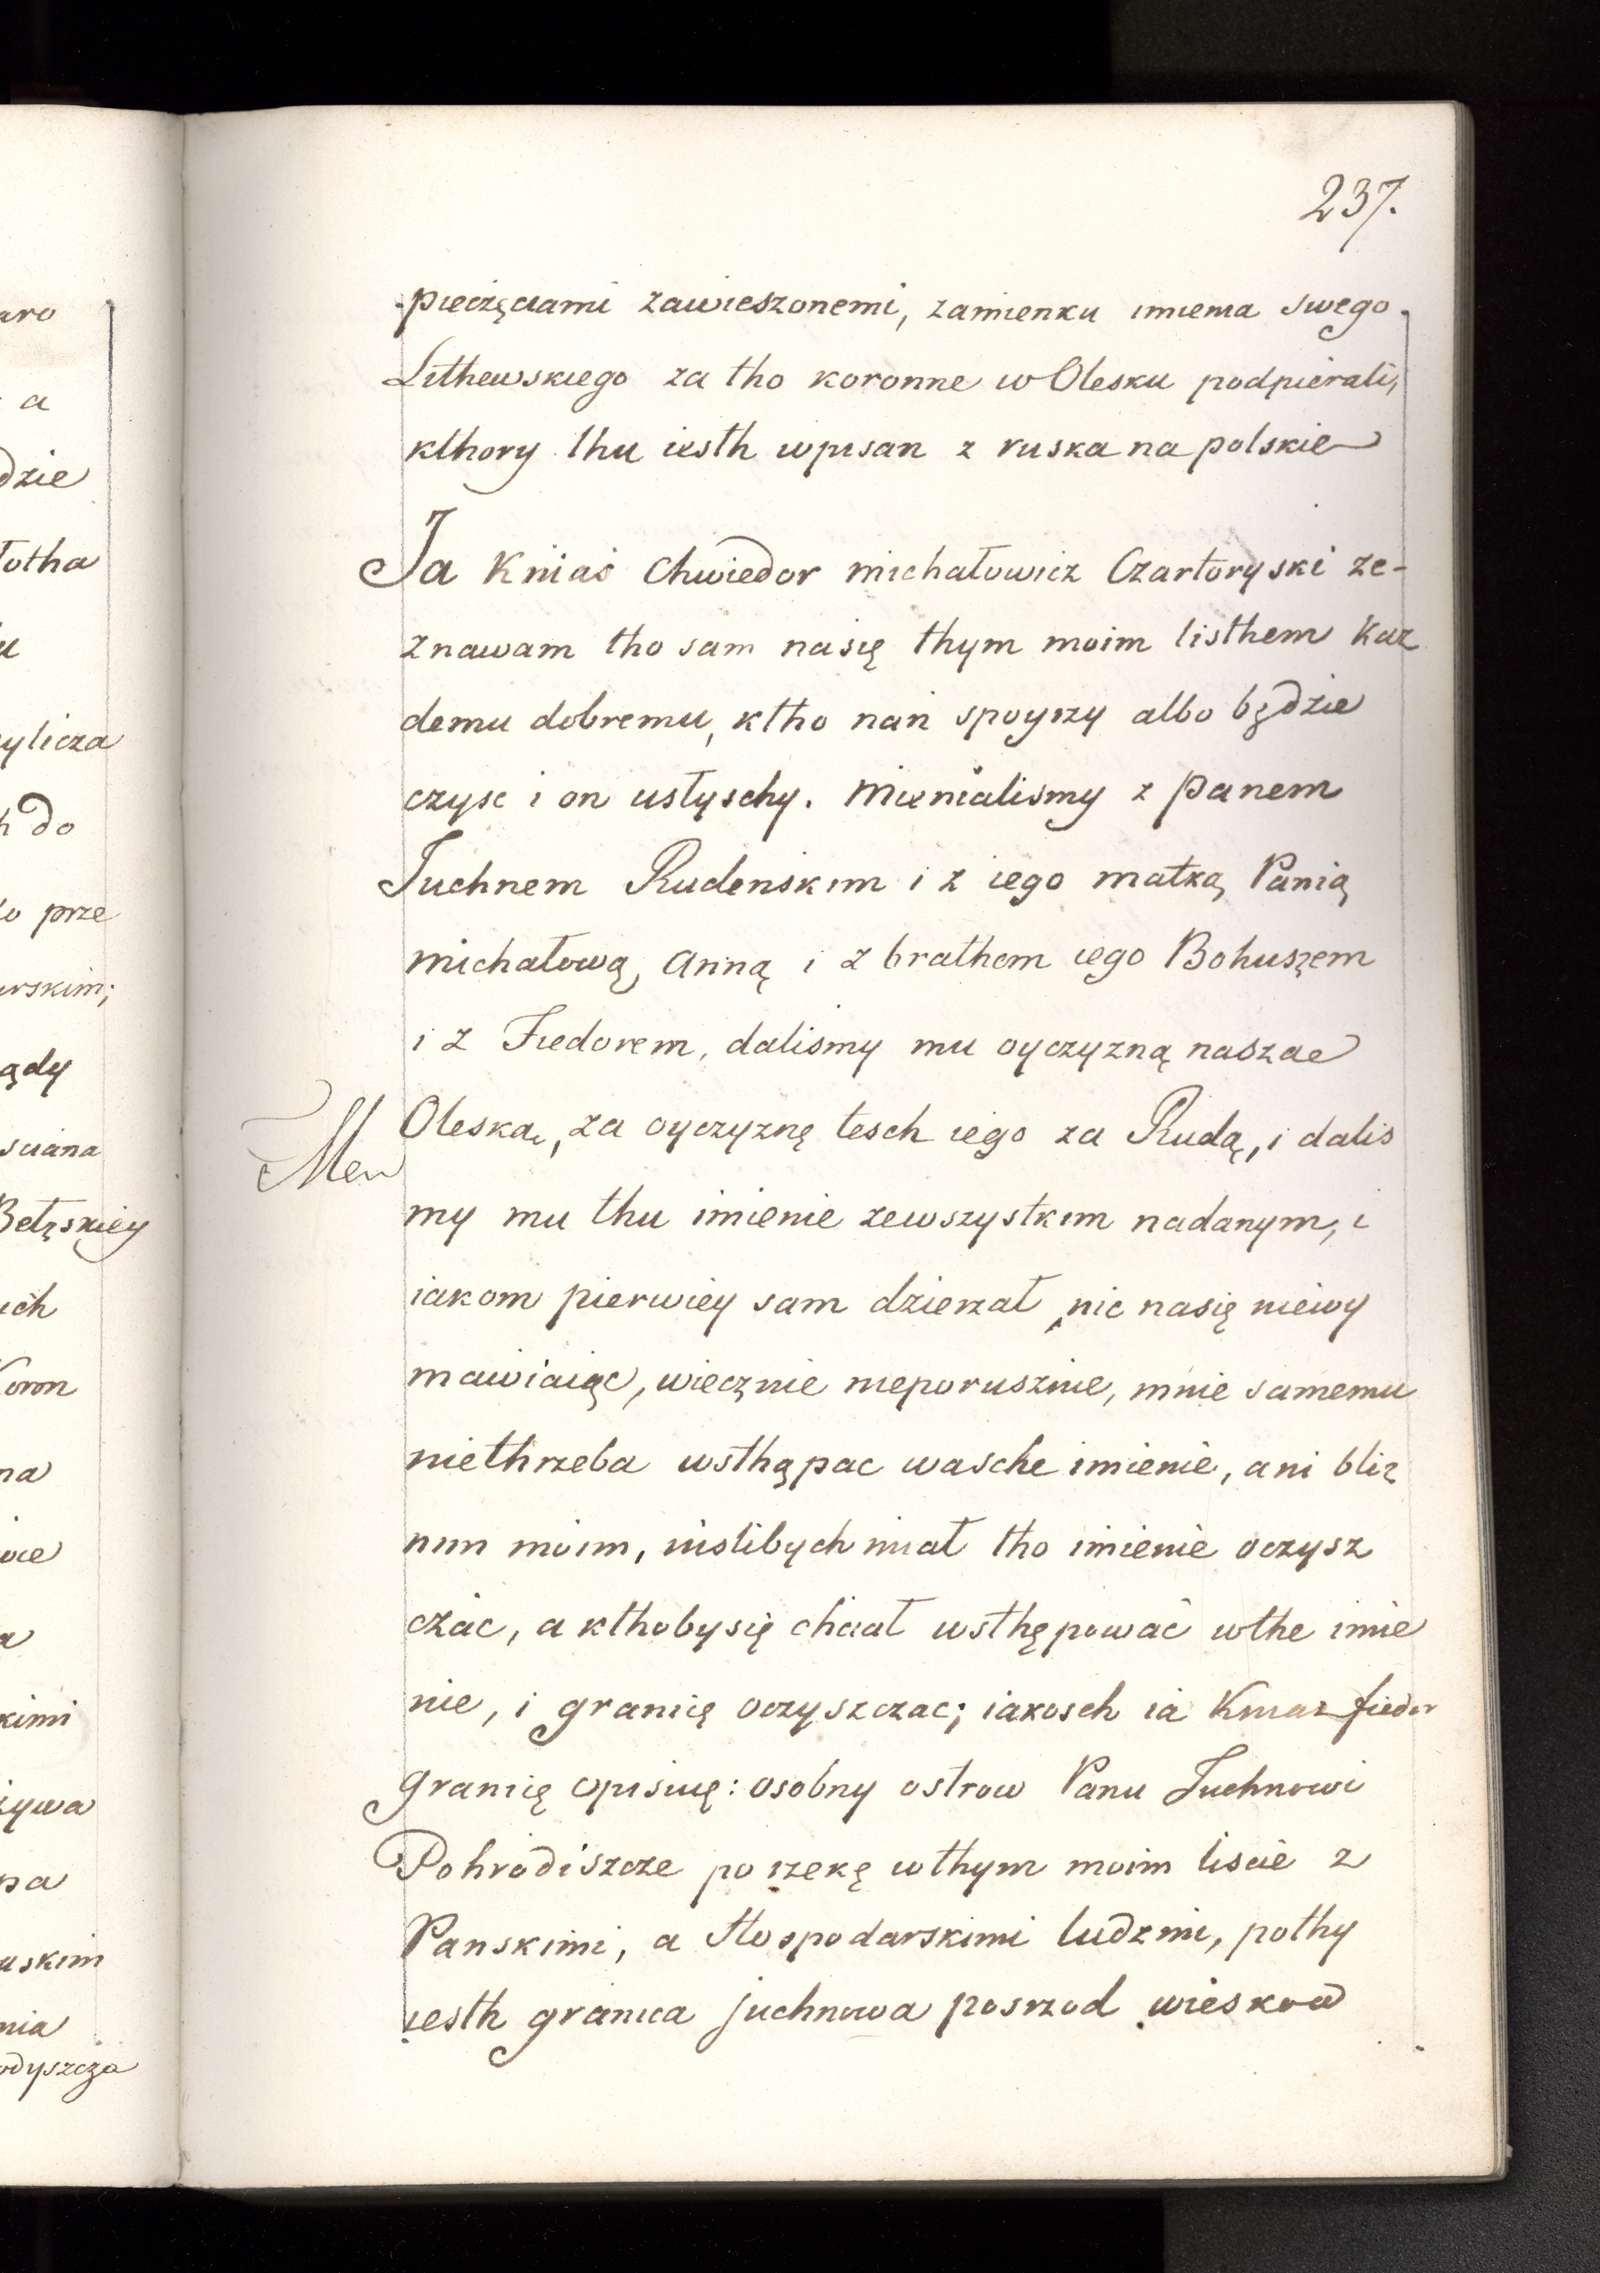 237.
pieczęciami zawieszonemi, zamienku imienia swego
Lithewskiego za tho koronne w Olesku podpierali,
kthory thu iesth wpisan z ruska na polskie
Ja Kniaś Chwiedor michałowicz Czartoryski ze-
znawam tho sam nasię thym moim listhem Kaz
demu dobremu, ktho nań spoyrzy albo będzie
czysc i on usłyschy. Mienialismy z Panem
Juchnem Rudenskim i z iego matką Panią
michałową, Anną i z brathem iego Bohuszem
i z Fiedorem, dalismy mu oyczyzną naszae
Oleska, za oyczyznę tesch iego za Rudą, i dalis
my mu thu imienie zewszystkim nadanym, i
iakom pierwiey sam dzierzał, nic nasię niewy
mawiaiąc, wiecznie nieporusznie, mnie samemu
niethrzeba wsthąpac wasche imienie, ani bliz
nim moim, nislibych miał tho imienie oczysz
czac, a kthobysię chciał wsthępowac wthe imie
nie, i granicę oczyszczac; iakosch ia Kniaz fiedor
granicę opisuię: osobny ostrow Panu Juchnowi
Pohrodiszcze po rzekę wthym moim liscie z
Panskimi, a Hospodarskimi ludzmi, pothy
iesth granica juchnowa posrzod wieskow
aro
a
dzie
łotha
u
ylicza
h do
o prze
rskim;
ądy
sciana
Bełzskiey
uch
Koron
na
a
kimi
żywa
pa
uskim
nia
odyszcza